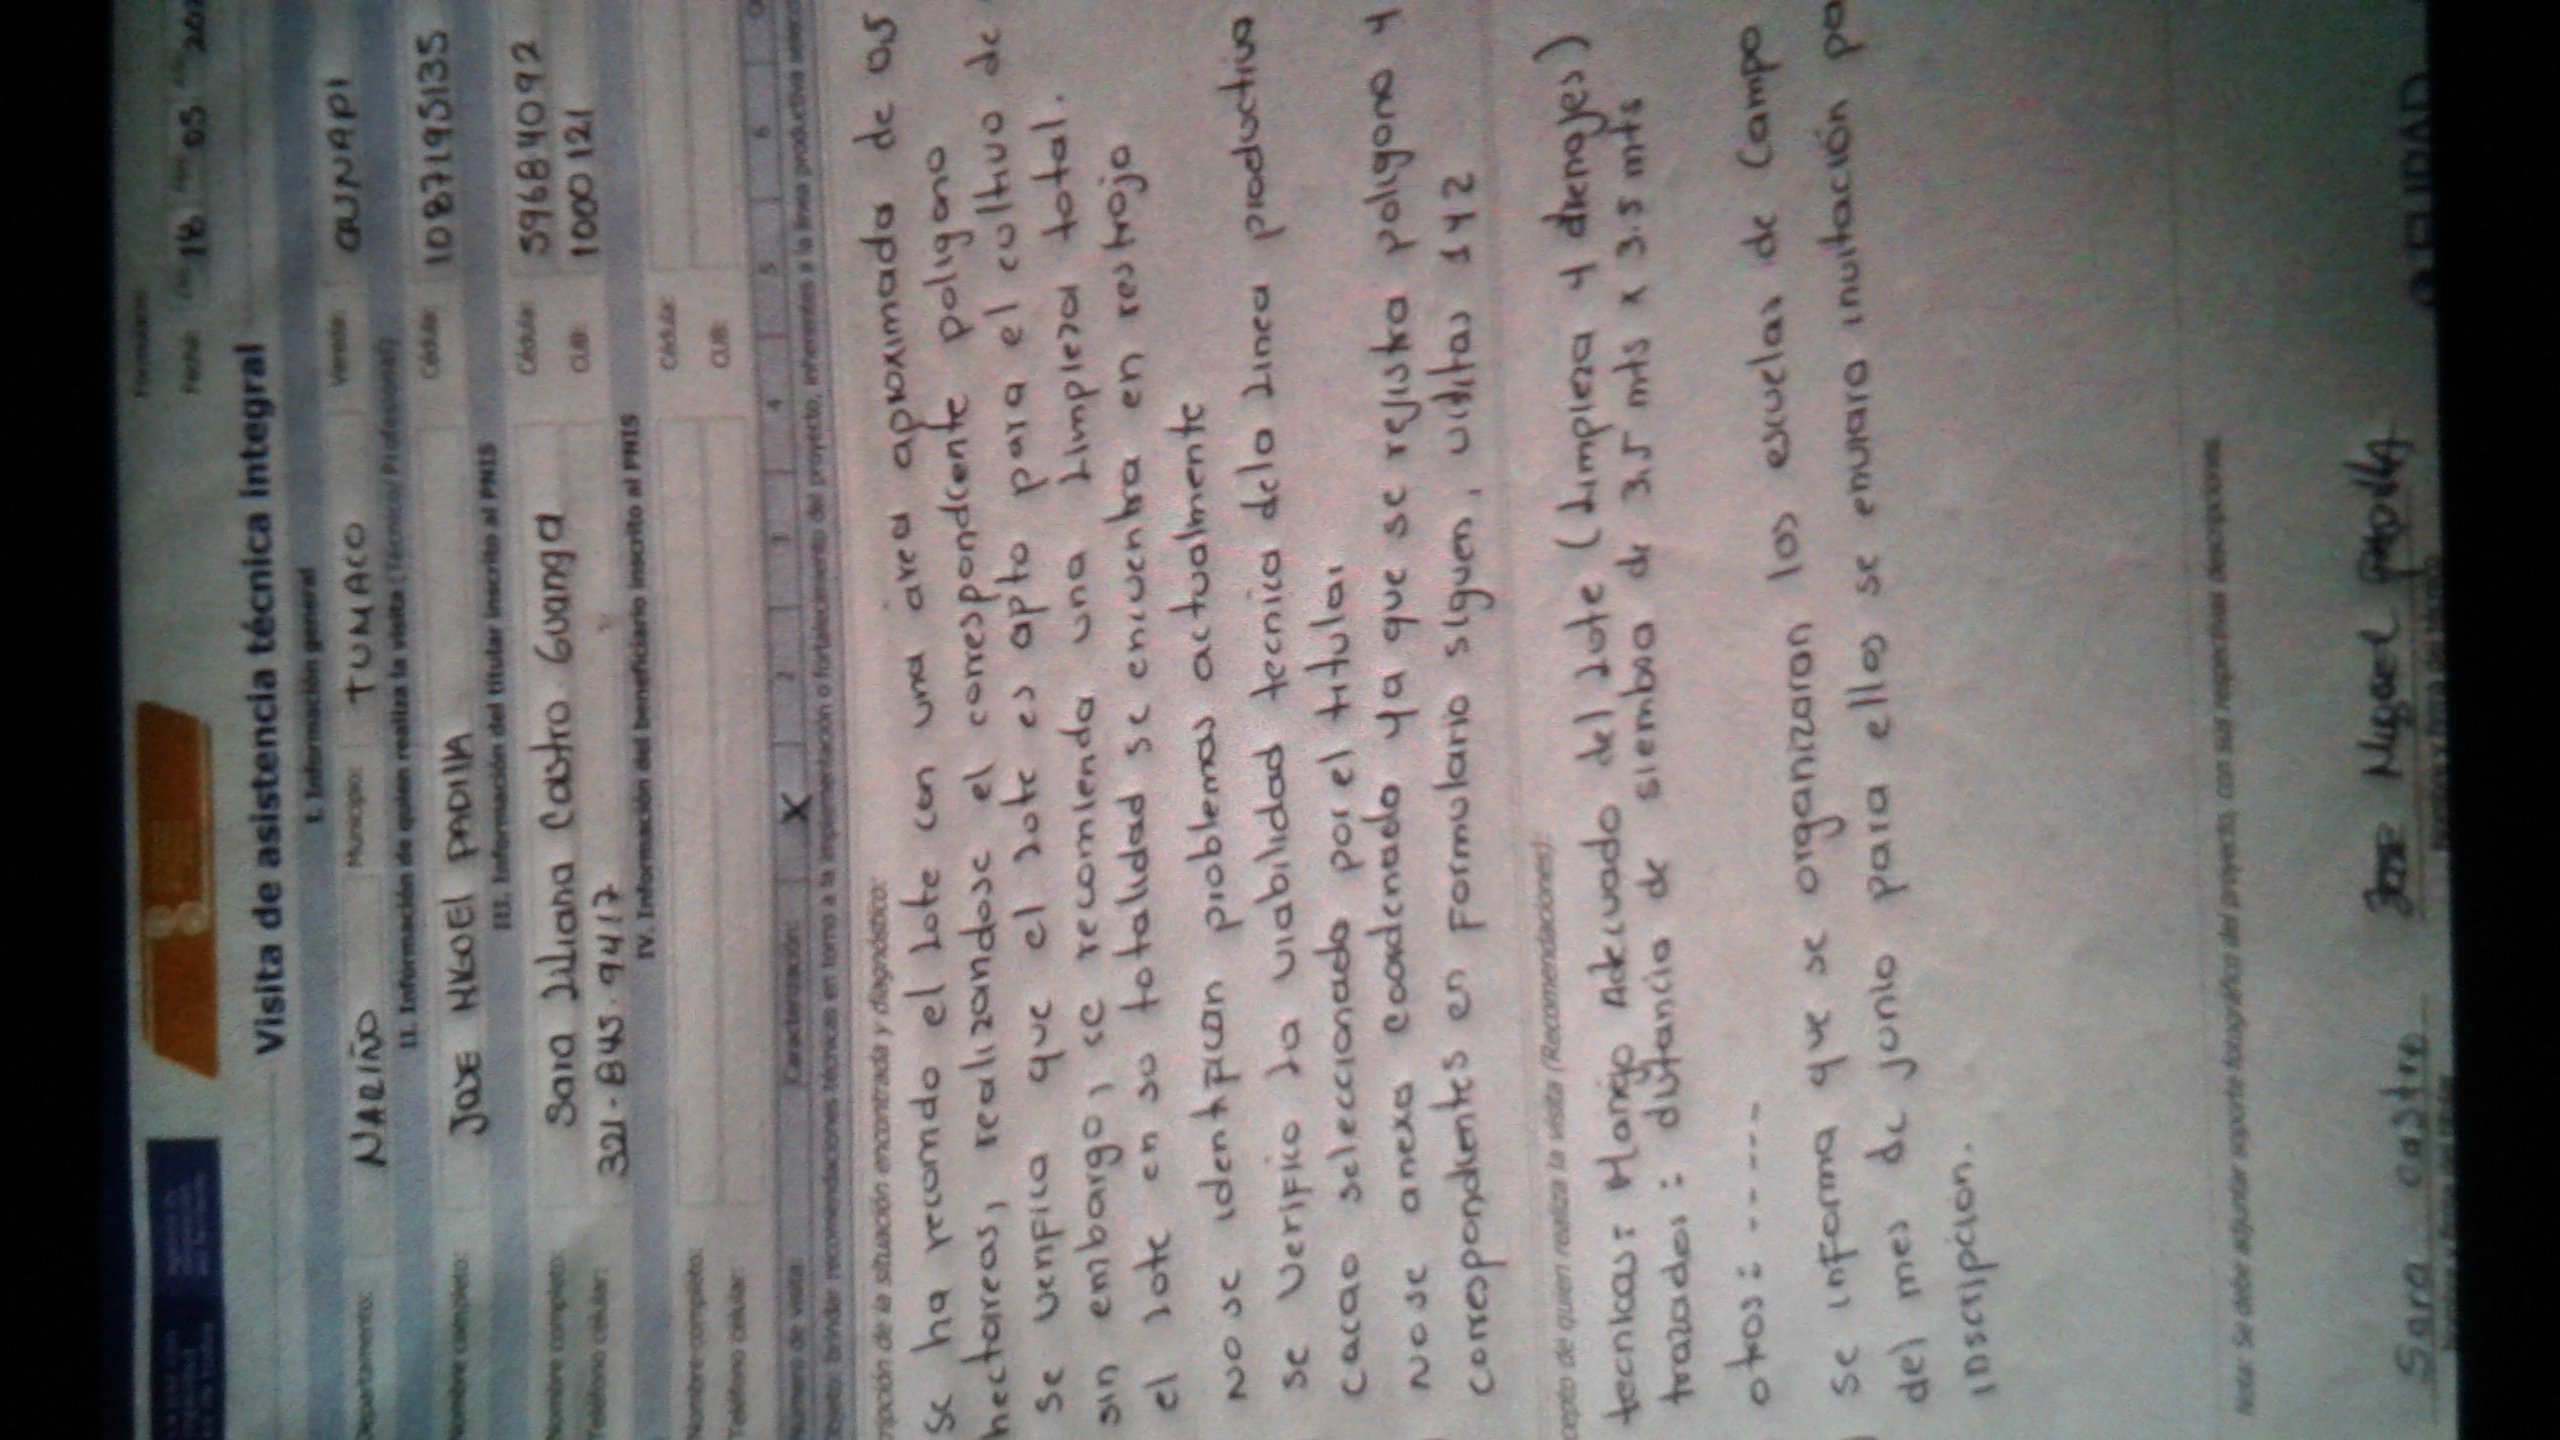 Formulario:
Fecha: 18 05 202
Visita de asistencia técnica integral
I. Información general
Departamento: NARIÑO Municipio: TUMACO Vereda: GUNAPI
II. Información de quien realiza la visita (Técnico/ Profesional)
Nombre completo: JOSE MIGUEL PADILLA Cédula: 1087195135
III. Información del titular inscrito al PNIS
Nombre completo: Sara Liliana Castro Guanga Cédula: 59684092
Teléfono celular: 321-845-9417 CUB: 1000121
IV. Información del beneficiario inscrito al PNIS
Nombre completo: Cédula:
Teléfono celular: CUB:
Número de visita: Caracterización: X 2 3 4 5 6
Objeto: Brindar recomendaciones técnicas en torno a la implementación o fortalecimiento del proyecto, inherentes a la línea productiva
ripción de la situación encontrada y diagnóstico:
Se ha recorrido el Lote con una área aproximada de 05
hectareas, realizandose el correspondiente poligono
Se verifica que el Lote es apto para el cultivo de
sin embargo, se recomienda una Limpieza total.
el Lote en so totalidad se encuentra en restrojo
No se identifican problemas actualmente
se verifico la viabilidad tecnica dela Linea productiva
cacao seleccionado por el titular
No se anexa coordenada ya que se registra poligono y
correspondientes en formulario siguen, visitas 1 y 2
cepto de quien realiza la visita (Recomendaciones):
tecnicas: Manejo Adecuado del Lote (Limpieza y drenajes)
trazados: distancia de siembra de 3.5 mts x 3.5 mts
otros: -----
Se informa que se organizaran las escuelas de Campo
del mes de junio para ellos se enviara invitación pa
inscripcion.
Nota: Se debe adjuntar soporte fotográfico del proyecto, con sus respectivas descripciones
Sara Castro JOSE Miguel PADILLA